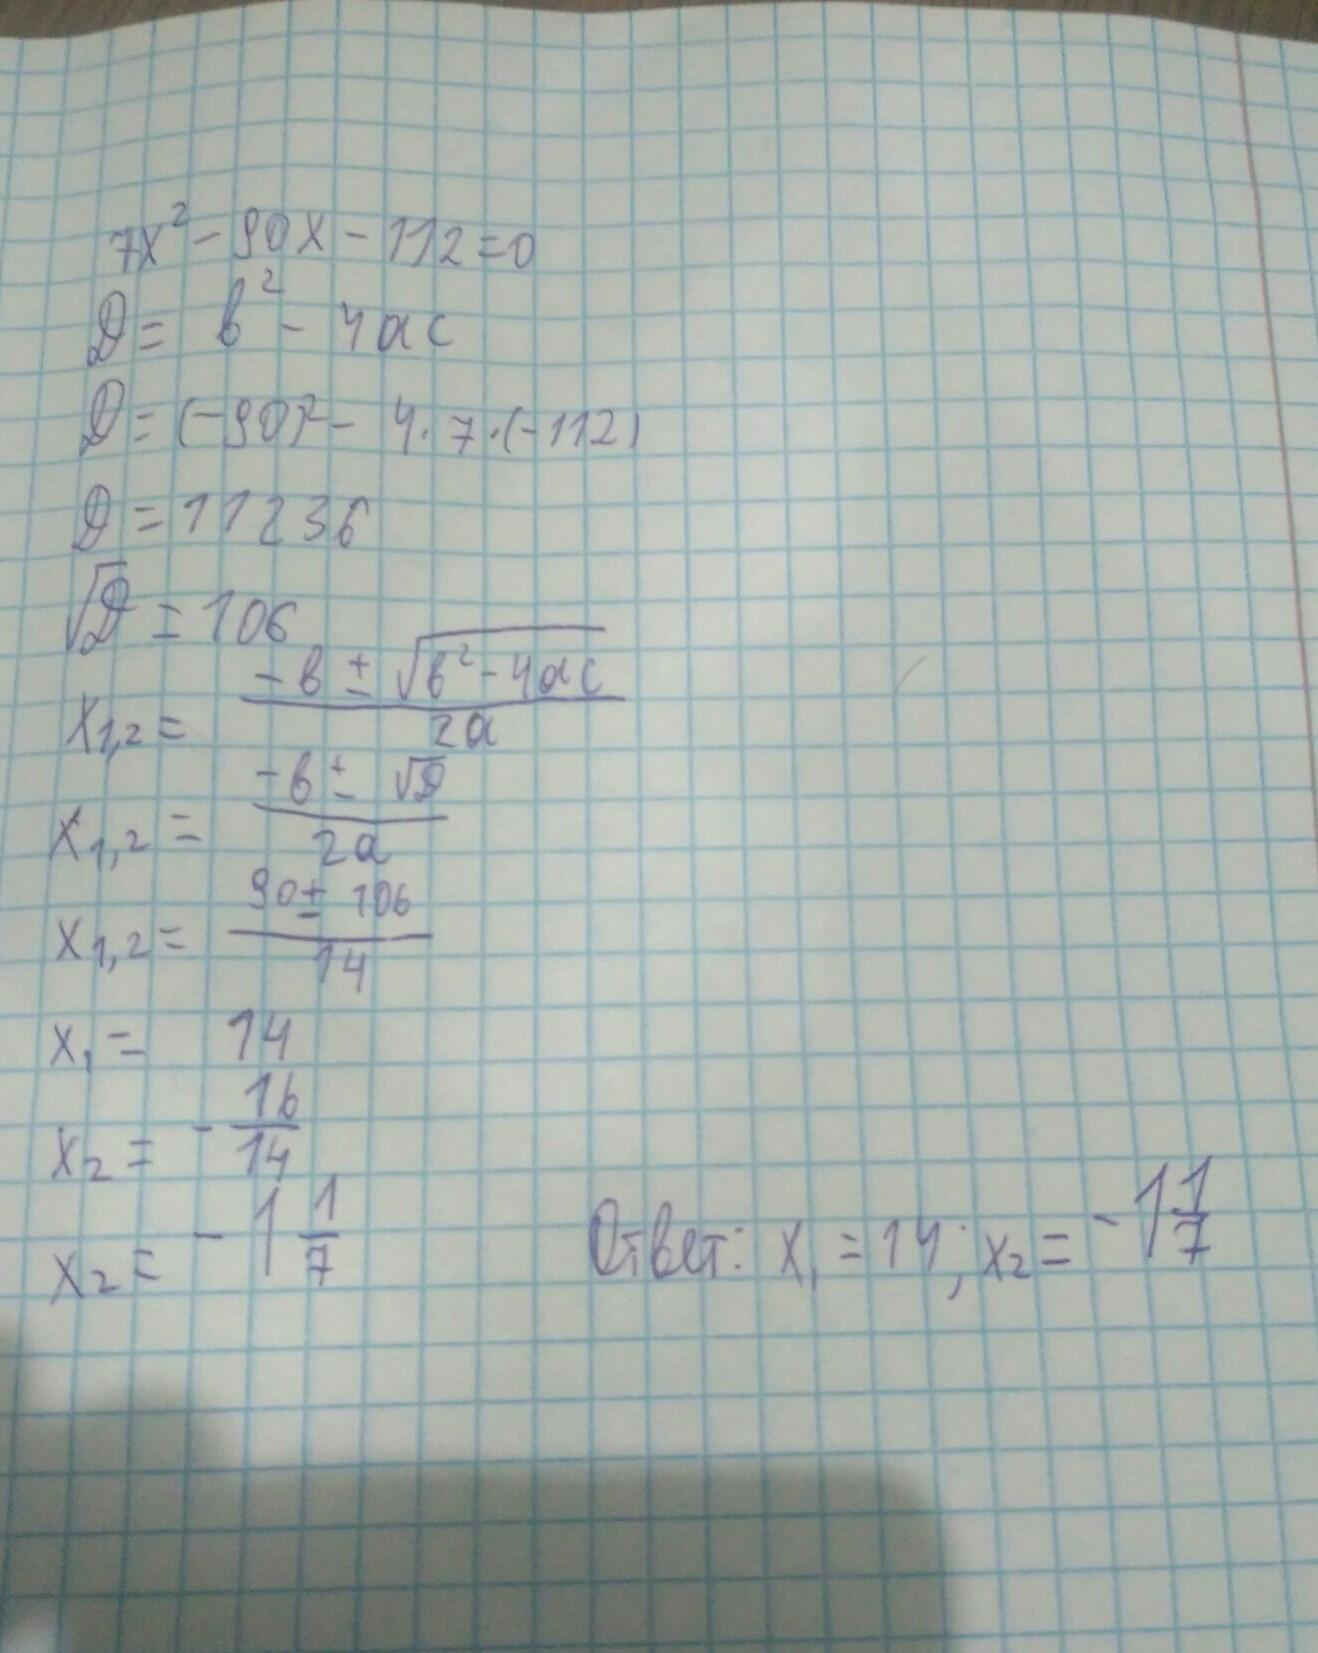 7x² - 90x - 112 = 0
D = b² - 4ac
D = (-90)² - 4·7·(-112)
D = 11236
√D = 106
x₁,₂ = (-b ± √(b² - 4ac)) / 2a
x₁,₂ = (-b ± √D) / 2a
x₁,₂ = (90 ± 106) / 14
x₁ = 14
x₂ = - 16/14
x₂ = - 1 1/7
Ответ: x₁ = 14; x₂ = - 1 1/7